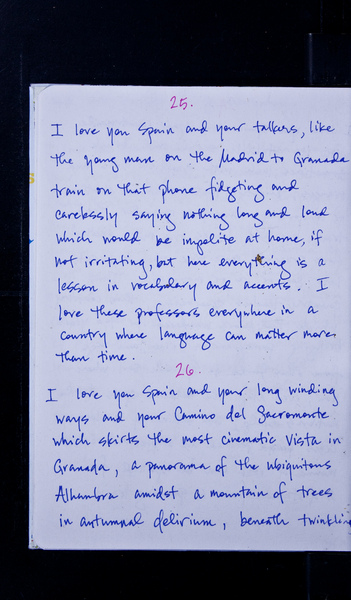 25.
I love you Spain and your talkers, like
the young man on the Madrid to Granada
train on that phone fidgeting and
carelessly saying nothing long and loud
which would be impolite at home, if
not irritating, but here everything is a
lesson in vocabulary and accents. I
love these professors everywhere in a
country where language can matter more
than time.
26.
I love you Spain and your long winding
ways and your Camino del Sacromonte
which skirts the most cinematic vista in
Granada, a panorama of the ubiquitous
Alhambra amidst a mountain of trees
in autumnal delirium, beneath twinkling